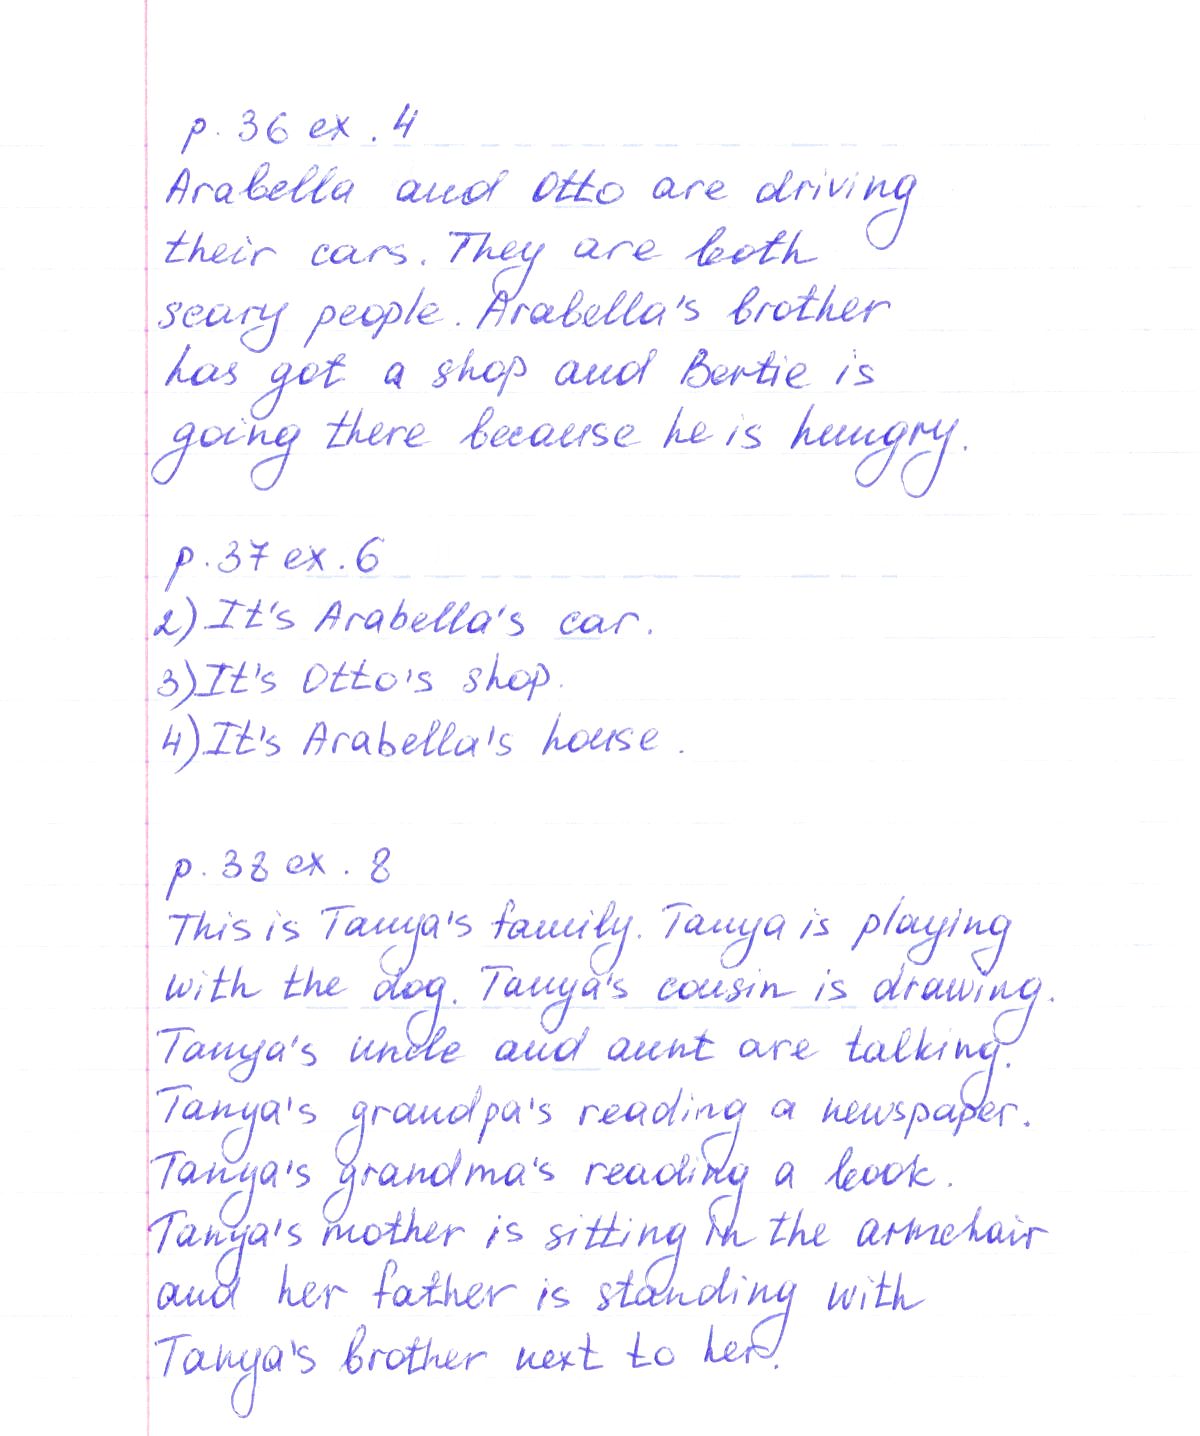 p. 36 ex. 4
Arabella and Otto are driving
their cars. They are both
scary people. Arabella's brother
has got a shop and Bertie is
going there because he is hungry.
p. 37 ex. 6
2) It's Arabella's car.
3) It's Otto's shop.
4) It's Arabella's house.
p. 38 ex. 8
This is Tanya's family. Tanya is playing
with the dog. Tanya's cousin is drawing.
Tanya's uncle and aunt are talking.
Tanya's grandpa's reading a newspaper.
Tanya's grandma's reading a book.
Tanya's mother is sitting in the armchair
and her father is standing with
Tanya's brother next to her.